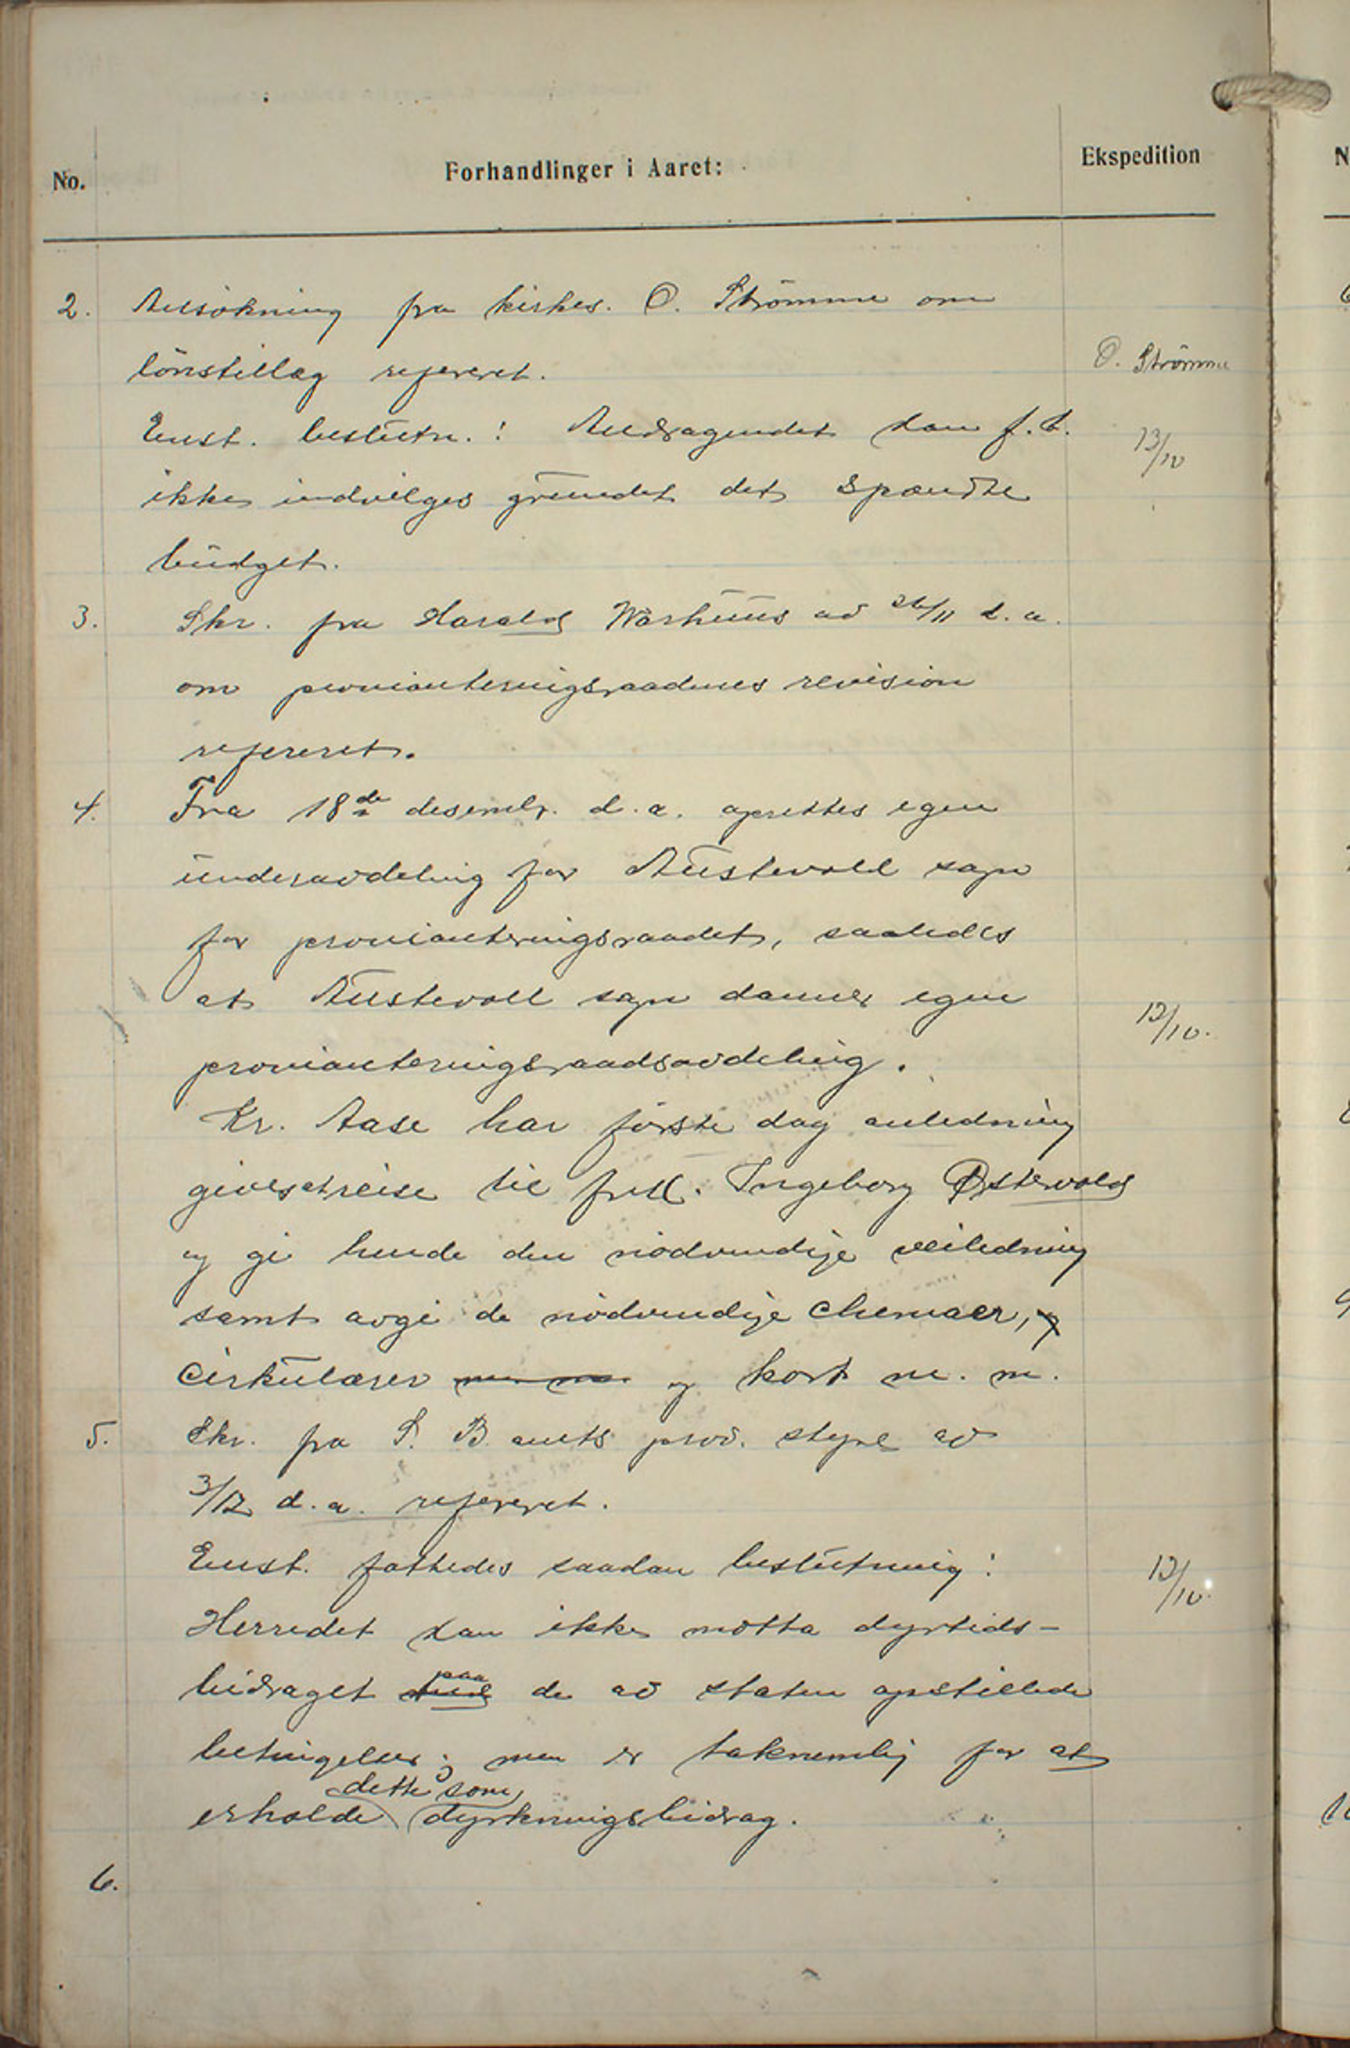 No.
Forhandlinger i Aaret:
Ekspedition
2. Ansökning fra kirkes. O. Strömme om
lönstillæg refereret.
O. Strömme
Enst. beslutn.: Andragendet kan f. t.
13/12
ikke indvilges grundet det spændte
budget.
3. Skr. fra Harald Warhuus av 26/11 d. a.
om provianteringsraadenes revision
refereret.
4. Fra 18de desembr. d. a. oprettes egen
underavdeling for Austevold sogn
for provianteringsraadet, saaledes
at Austevoll sogn danner egen
13/12.
provianteringsraadsavdeling.
Kr. Aase har förste dag anledning
gives at reise til frk. Ingeborg Østervold
og gi hende den nödvendige veiledning
samt avgi de nödvendige chemaer, og
cirkulærer m. m. og kort m. m.
5. Skr. fra S. B. amts prov. styre av
3/12 d. a. refereret.
Enst. fattedes saadan beslutning:
13/12.
Herredet kan ikke motta dyrtids-
bidraget paa de av staten opstillede
betingelser; men er taknemlig for at
erholde dette som dyrkningsbidrag.
6.